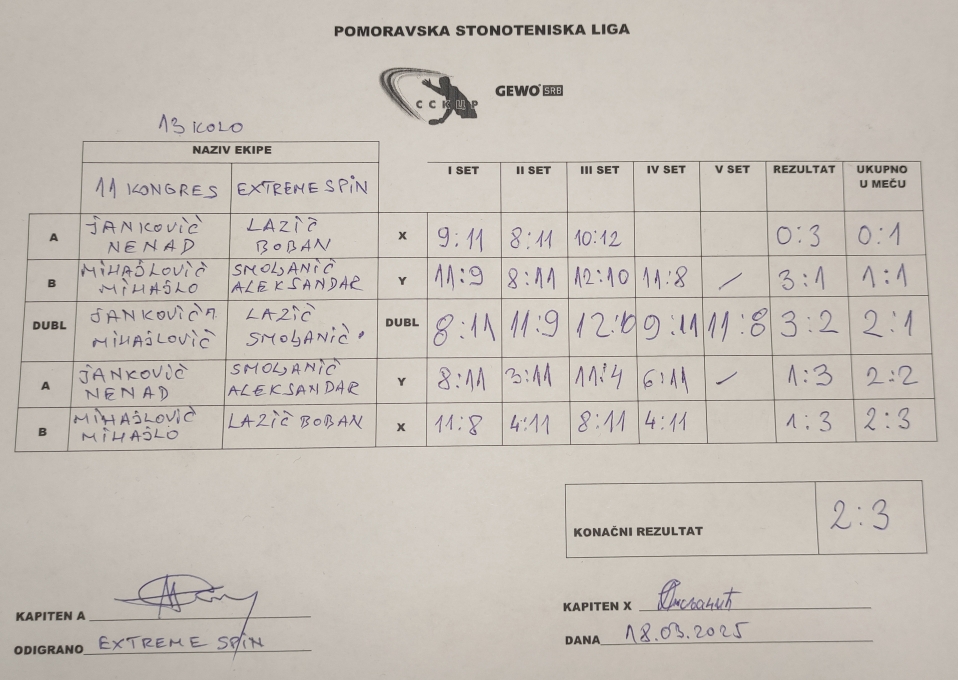 POMORAVSKA STONOTENISKA LIGA
ССКЦР GEWO SRB
13 KOLO
NAZIV EKIPE
I SET II SET III SET IV SET V SET REZULTAT UKUPNO U MEČU
11 KONGRES EXTREME SPIN
A JANKOVIĆ NENAD LAZIĆ BOBAN X 9:11 8:11 10:12 0:3 0:1
B MIHAJLOVIĆ MIHAJLO SMOLJANIĆ ALEKSANDAR Y 11:9 8:11 12:10 11:8 / 3:1 1:1
DUBL JANKOVIĆ MIHAJLOVIĆ LAZIĆ SMOLJANIĆ DUBL 8:11 11:9 12:10 9:11 11:8 3:2 2:1
A JANKOVIĆ NENAD SMOLJANIĆ ALEKSANDAR Y 8:11 3:11 11:4 6:11 / 1:3 2:2
B MIHAJLOVIĆ MIHAJLO LAZIĆ BOBAN X 11:8 4:11 8:11 4:11 1:3 2:3
KONAČNI REZULTAT 2:3
KAPITEN A
KAPITEN X
ODIGRANO EXTREME SPIN
DANA 18.03.2025